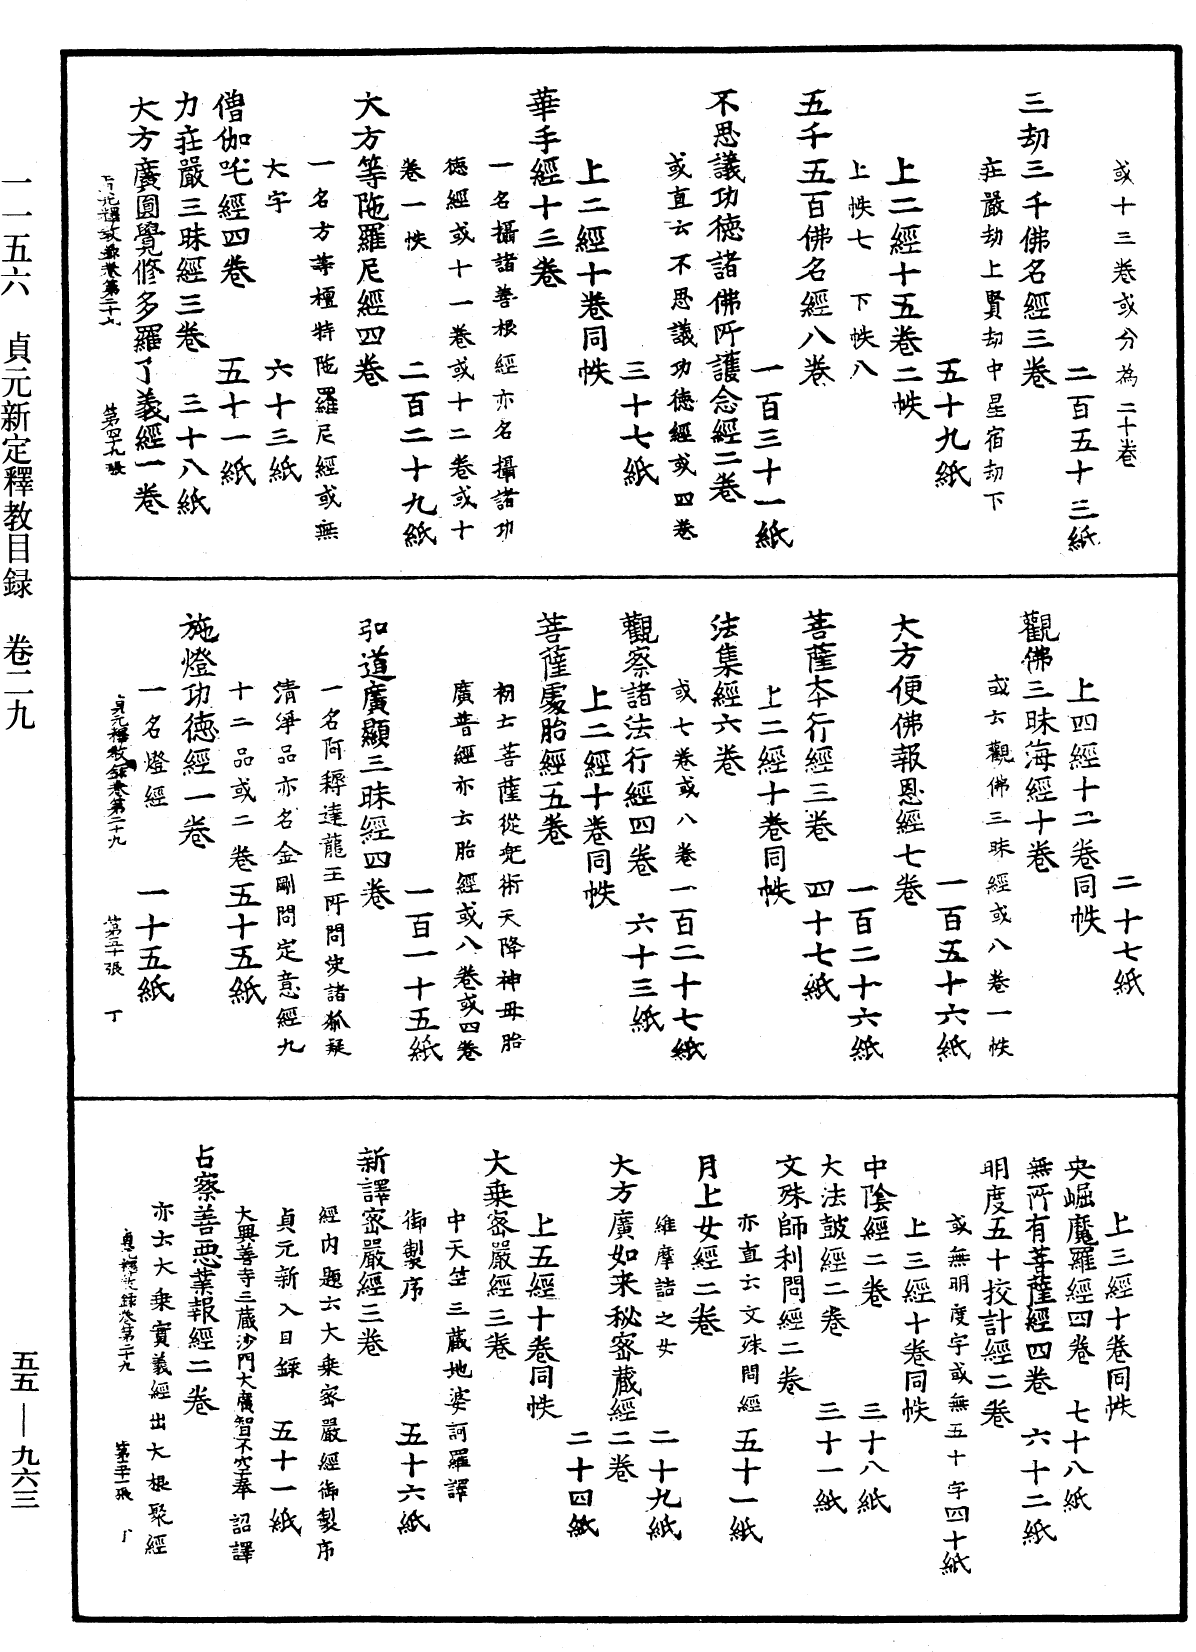 或十三卷或分為二十卷
二百五十三紙
三劫三千佛名經三卷
莊嚴劫上賢劫中星宿劫下
五十九紙
上二經十五卷二帙
上帙七　下帙八
五千五百佛名經八卷
一百三十一紙
不思議功德諸佛所護念經二卷
或直云不思議功德經或四卷
三十七紙
上二經十卷同帙
華手經十三卷
一名攝諸善根經亦名攝諸功
德經或十一卷或十二卷或十
卷一帙　二百二十九紙
大方等陁羅尼經四卷
一名方等檀特陁羅尼經或無
大字　六十三紙
僧伽吒經四卷　五十一紙
力莊嚴三昧經三卷　三十八紙
大方廣圓覺修多羅了義經一卷
貞元釋教錄卷第二十九　第四十九張
二十七紙
上四經十二卷同帙
觀佛三昧海經十卷
或云觀佛三昧經或八卷一帙
一百五十六紙
大方便佛報恩經七卷
一百二十六紙
菩薩本行經三卷　四十七紙
上二經十卷同帙
法集經六卷
或七卷或八卷一百二十七紙
觀察諸法行經四卷　六十三紙
上二經十卷同帙
菩薩處胎經五卷
初士菩薩從兜術天降神母胎
廣普經亦云胎經或八卷或四卷
一百一十五紙
弘道廣顯三昧經四卷
一名阿耨達龍王所問決諸狐疑
清淨品亦名金剛問定意經九
十二品或二卷五十五紙
施燈功德經一卷
一名燈經　一十五紙
貞元釋教錄卷第二十九　第五十張　丁
上三經十卷同帙
央崛魔羅經四卷　七十八紙
無所有菩薩經四卷　六十二紙
明度五十挍計經二卷
或無明度字或無五十字四十紙
上三經十卷同帙
中陰經二卷　三十八紙
大法皷經二卷　三十一紙
文殊師利問經二卷
亦直云文殊問經　五十一紙
月上女經二卷
維摩詰之女　二十九紙
大方廣如来秘密藏經二卷
二十四紙
上五經十卷同帙
大乘密嚴經三卷
中天竺三藏地婆訶羅譯
御製序　五十六紙
新譯密嚴經三卷
經内題云大乘密嚴經御製序
貞元新入目錄　五十一紙
大興善寺三藏沙門大廣智不空奉詔譯
占察善惡業報經二卷
亦云大乘實義經出大根聚經
貞元釋教錄卷第二十九　第五十一張　丁
一一五六　貞元新定釋教目録　卷二九
五五—九六三